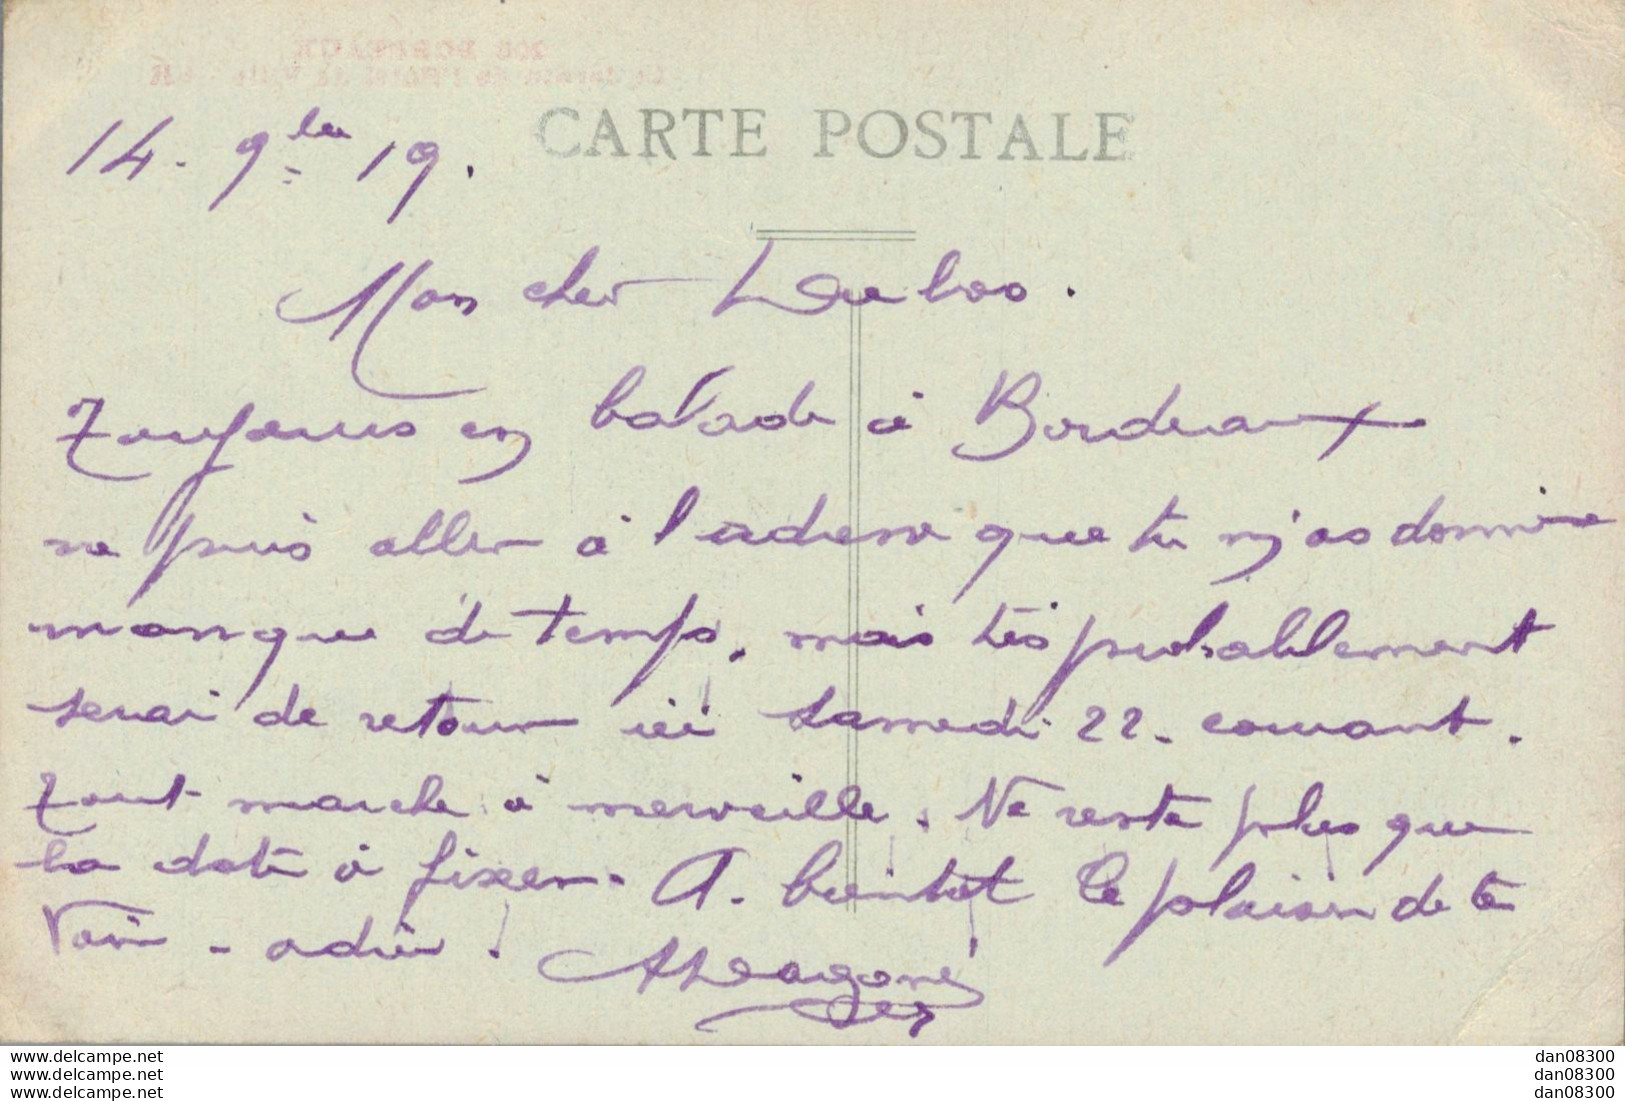 CARTE POSTALE
14. 9bre 19.
Mon cher Dubos.
Toujours en balade à Bordeaux
ne puis aller à l'adresse que tu m'as donnée
manque de temps, mais très probablement
serai de retour ici samedi 22 courant.
Tout marche à merveille. Ne reste plus que
la date à fixer. A bientôt le plaisir de te
voir - adieu.
dan08300
dan08300
dan08300
www.delcampe.net
www.delcampe.net
www.delcampe.net